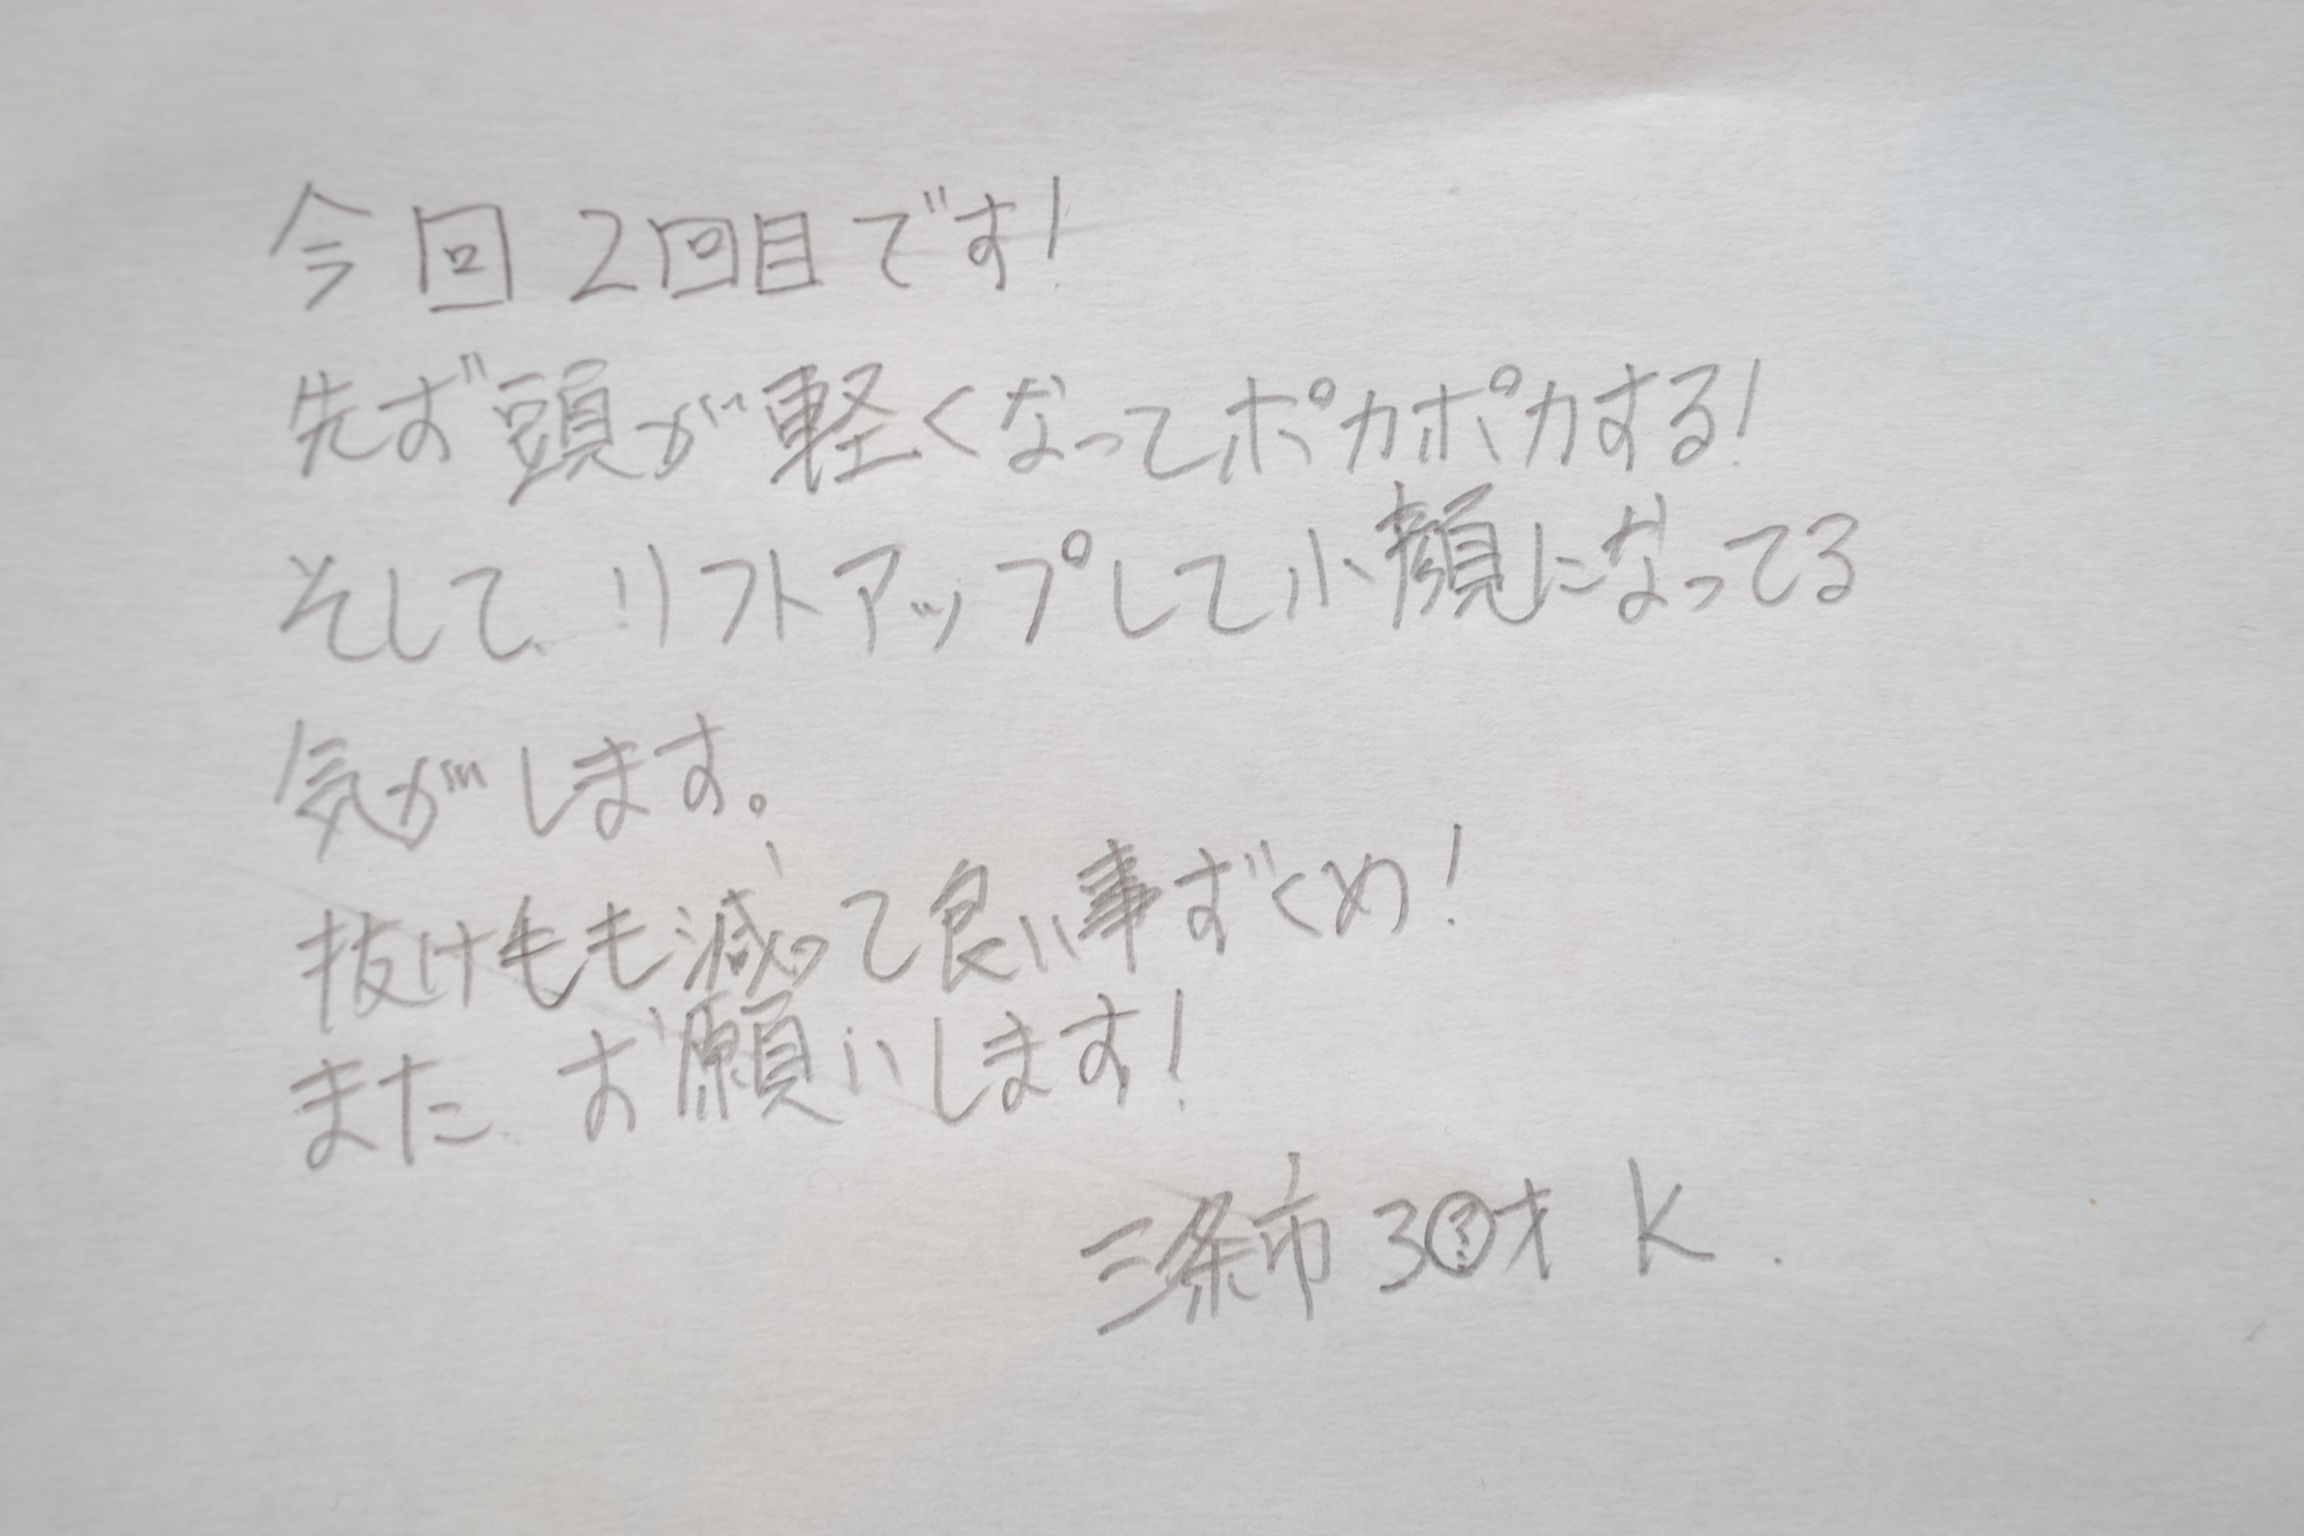 今回 2回目です!
先ず頭が軽くなってポカポカする!
そして リフトアップして小顔になってる
気がします。
抜け毛も減って良い事ずくめ!
また お願いします!
三条市 3?才 K.